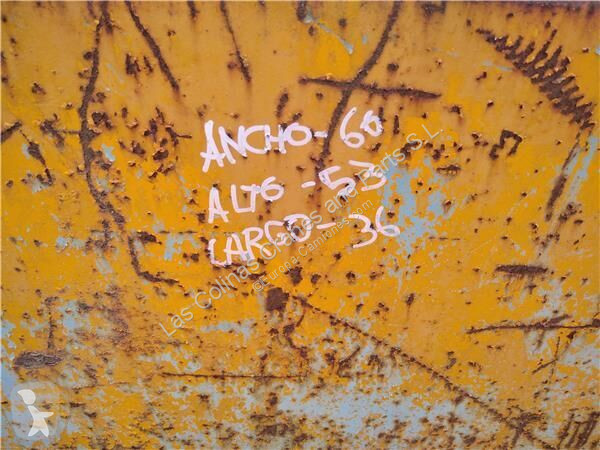 ANCHO-60
ALTO-53
LARGO-36
Las Colinas Cranes and Parts S.L.
Europa-Camiones.com